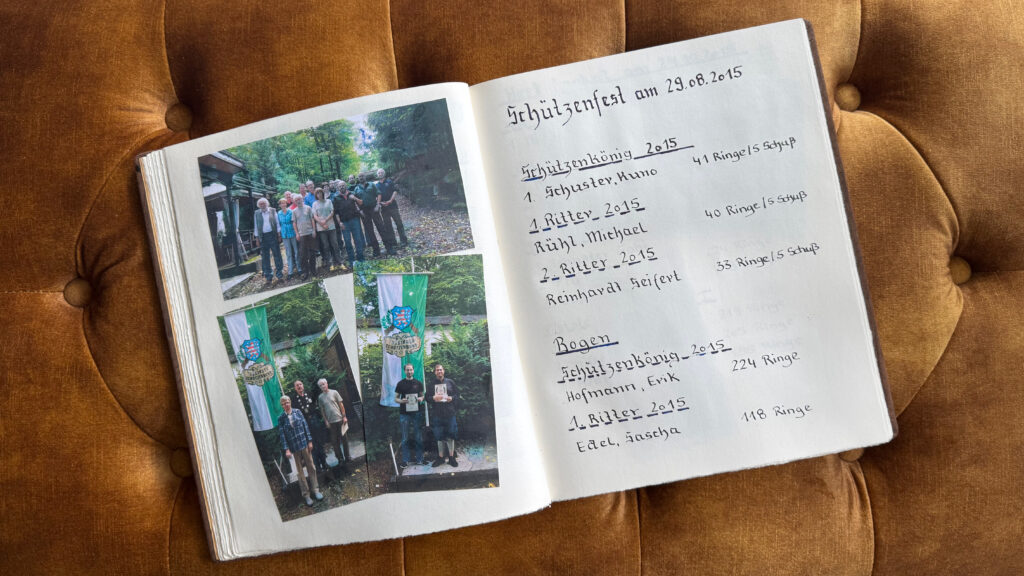 Schützenfest am 29.08.2015
Schützenkönig 2015
1. Schuster, Kuno 41 Ringe/5 Schuß
1. Ritter 2015
Rühl, Michael 40 Ringe/5 Schuß
2. Ritter 2015
Reinhardt Seifert 33 Ringe/5 Schuß
Bogen
Schützenkönig 2015
Hofmann, Erik 224 Ringe
1. Ritter 2015
Edel, Sascha 118 Ringe